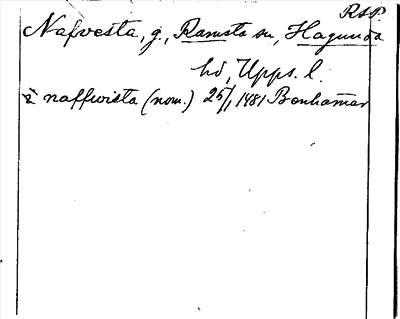 RSP.
Nafvesta, g., Ramsta sn, Hagunda
hd, Upps. l.
i naffwista (nom.) 25/1 1481 Bonhamar